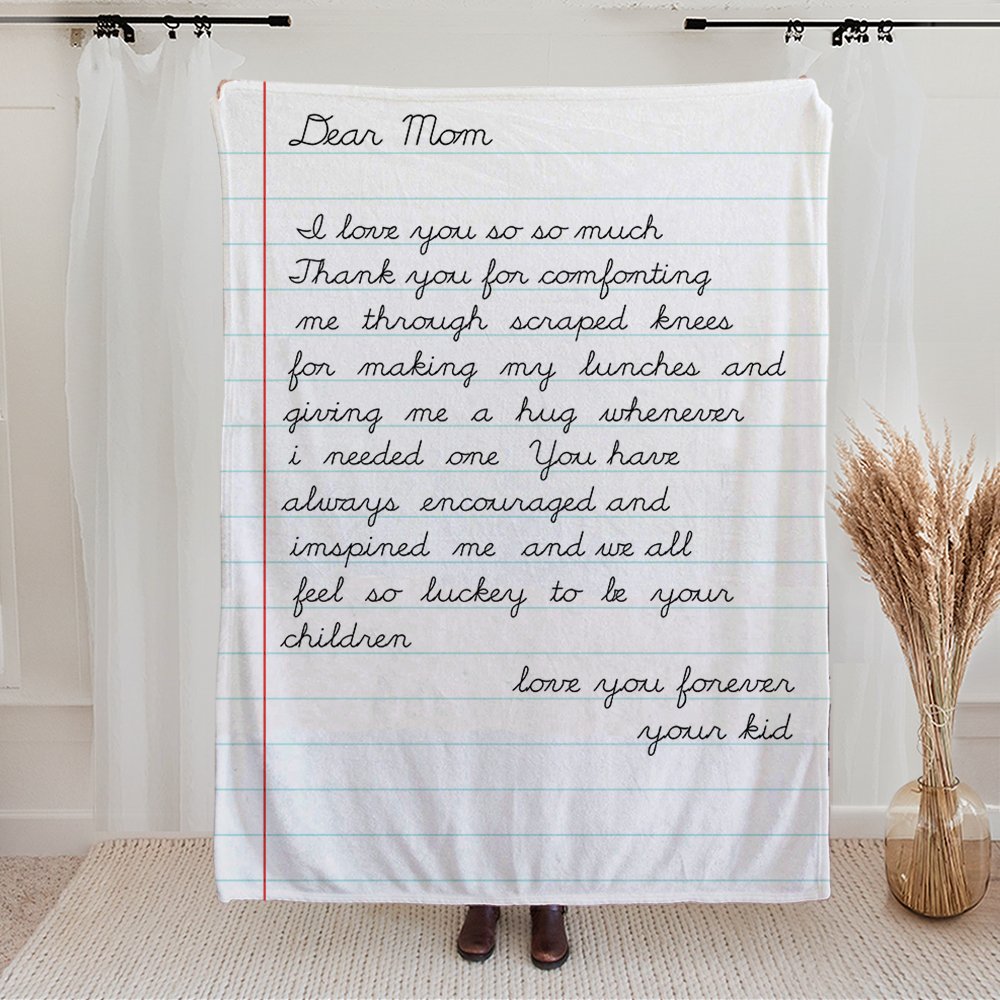 Dear Mom
I love you so so much
Thank you for comfonting
me through scraped knees
for making my lunches and
giving me a hug whenever
i needed one You have
always encouraged and
imspined me and we all
feel so luckey to be your
children
love you forever
your kid